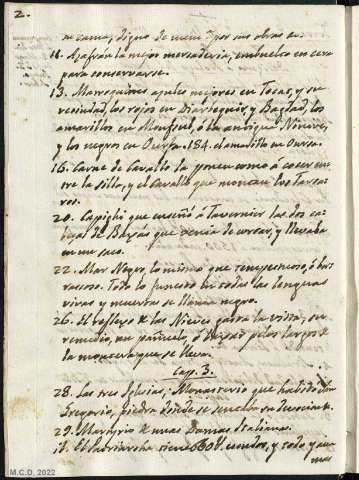 2.
fama, digno de memoria por sus obras a.
11. Azafrán la mejor mercaderia, embuelto en cera
para conservarse.
13. Marroquines azules mejores en Tocat, y su
vecindad, los rojos en Diarbequir, y Bagdad, los
amarillos en Moussul, ô la antigua Ninive,
y los negros en Ourfa. 184. el amarillo en Ourfa.
16. Carne de Cavallo la ponen como â cocer en-
tre la silla, y el Cavallo que montan los Tarta-
ros.
20. Capighi que enseñò â Tavernier las dos ca-
bezas de Baxás que venia de cortar, y llevaba
en un saco.
22. Mar Negro, lo mismo que tempestuoso, ô bo-
rrascoso. Todo lo funesto en todas las lenguas
vivas y muertas se llama negro.
26. El reflexo de las Nieves gasta la vista, su
remedio, un pañuelo, ô
la montera que se lleva.
Cap. 3.
28. Las tres Iglesias; Monasterio que habitò San
Gregorio, piedra donde se
29. Martyrio de unas Damas Italianas.
El Patriarcha tiene ducados, y todo
mas
M.C.D. 2022